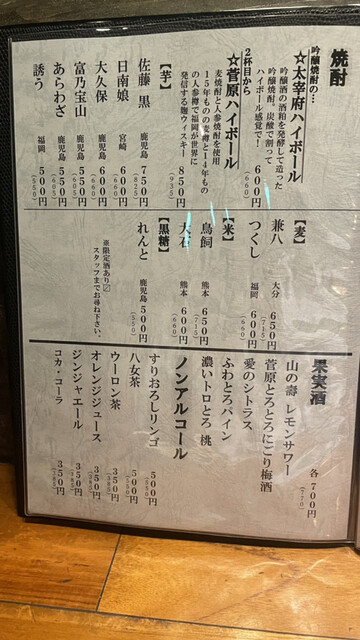 焼酎
吟醸焼酎の…
☆太宰府ハイボール
600円
(660)
吟醸酒の酒粕を発酵して造った
吟醸焼酎。炭酸で割って
ハイボール感覚で！
2杯目から
☆菅原ハイボール
850円
(935)
麦焼酎と人参焼酎を使用
15年ものの麦樽と14年もの
の人参樽で福岡が世界に
発信する麹ウィスキー
【芋】
佐藤 黒 鹿児島 750円
(825)
日南娘 宮崎 600円
(660)
大久保 鹿児島 600円
(660)
富乃宝山 鹿児島 550円
(605)
あらわざ 鹿児島 550円
(605)
誘う 福岡 500円
(550)
【麦】
兼八 大分 650円
(715)
つくし 福岡 600円
(660)
【米】
鳥飼 熊本 650円
(715)
大石 熊本 600円
(660)
【黒糖】
れんと 鹿児島 500円
(550)
※限定酒あり〼
スタッフまでお尋ね下さい。
果実酒
各700円
(770)
山の壽 レモンサワー
菅原とろとろにごり梅酒
愛のシトラス
ふわとろパイン
濃いトロとろ 桃
ノンアルコール
すりおろしリンゴ 500円
(550)
八女茶 500円
(550)
ウーロン茶 350円
(385)
オレンジジュース 350円
(385)
ジンジャエール 350円
(385)
コカ・コーラ 350円
(385)